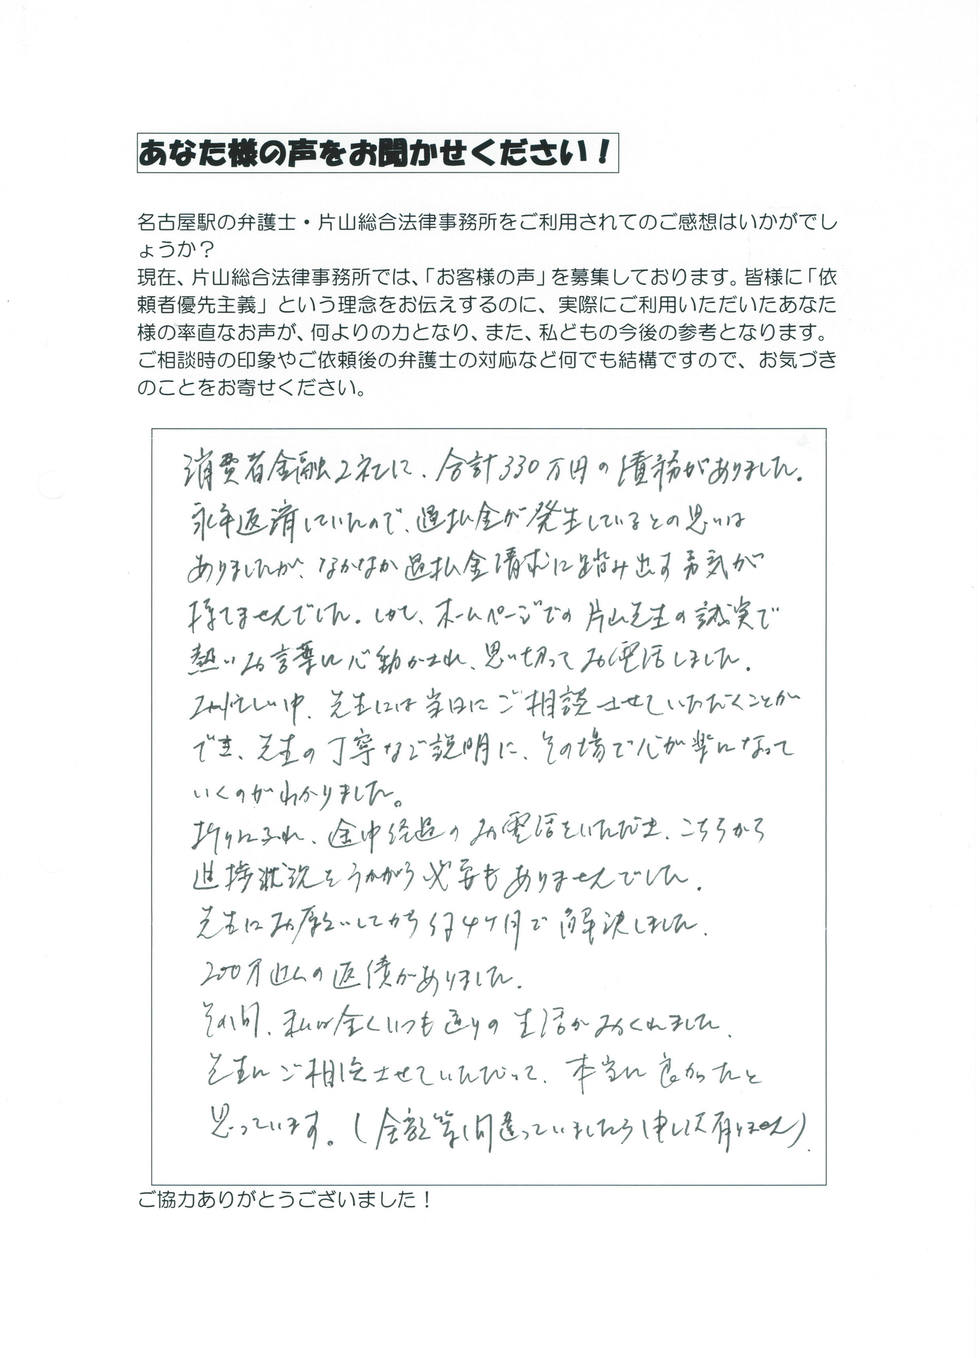 あなた様の声をお聞かせください！
名古屋駅の弁護士・片山総合法律事務所をご利用されてのご感想はいかがでし
ょうか？
現在、片山総合法律事務所では、「お客様の声」を募集しております。皆様に「依
頼者優先主義」という理念をお伝えするのに、実際にご利用いただいたあなた
様の率直なお声が、何よりの力となり、また、私どもの今後の参考となります。
ご相談時の印象やご依頼後の弁護士の対応など何でも結構ですので、お気づき
のことをお寄せください。
消費者金融2社に、合計330万円の債務がありました。
永年返済していたので、過払金が発生しているとの思いは
ありましたが、なかなか過払金請求に踏み出す勇気が
持てませんでした。しかし、ホームページでの片山先生の誠実で
熱いお言葉に心動かされ、思い切ってお電話しました。
お忙しい中、先生には当日にご相談させていただくことが
でき、先生の丁寧なご説明に、その場で心が楽になって
いくのがわかりました。
折りにふれ、途中経過のお電話をいただき、こちらから
進捗状況をうかがう必要もありませんでした。
先生にお願いしてから約4ケ月で解決しました。
200万以上の返債がありました。
その間、私は全くいつも通りの生活がおくれました。
先生にご相談させていただいて、本当に良かったと
思っています。(金額等間違っていましたら申し訳有りません)
ご協力ありがとうございました！